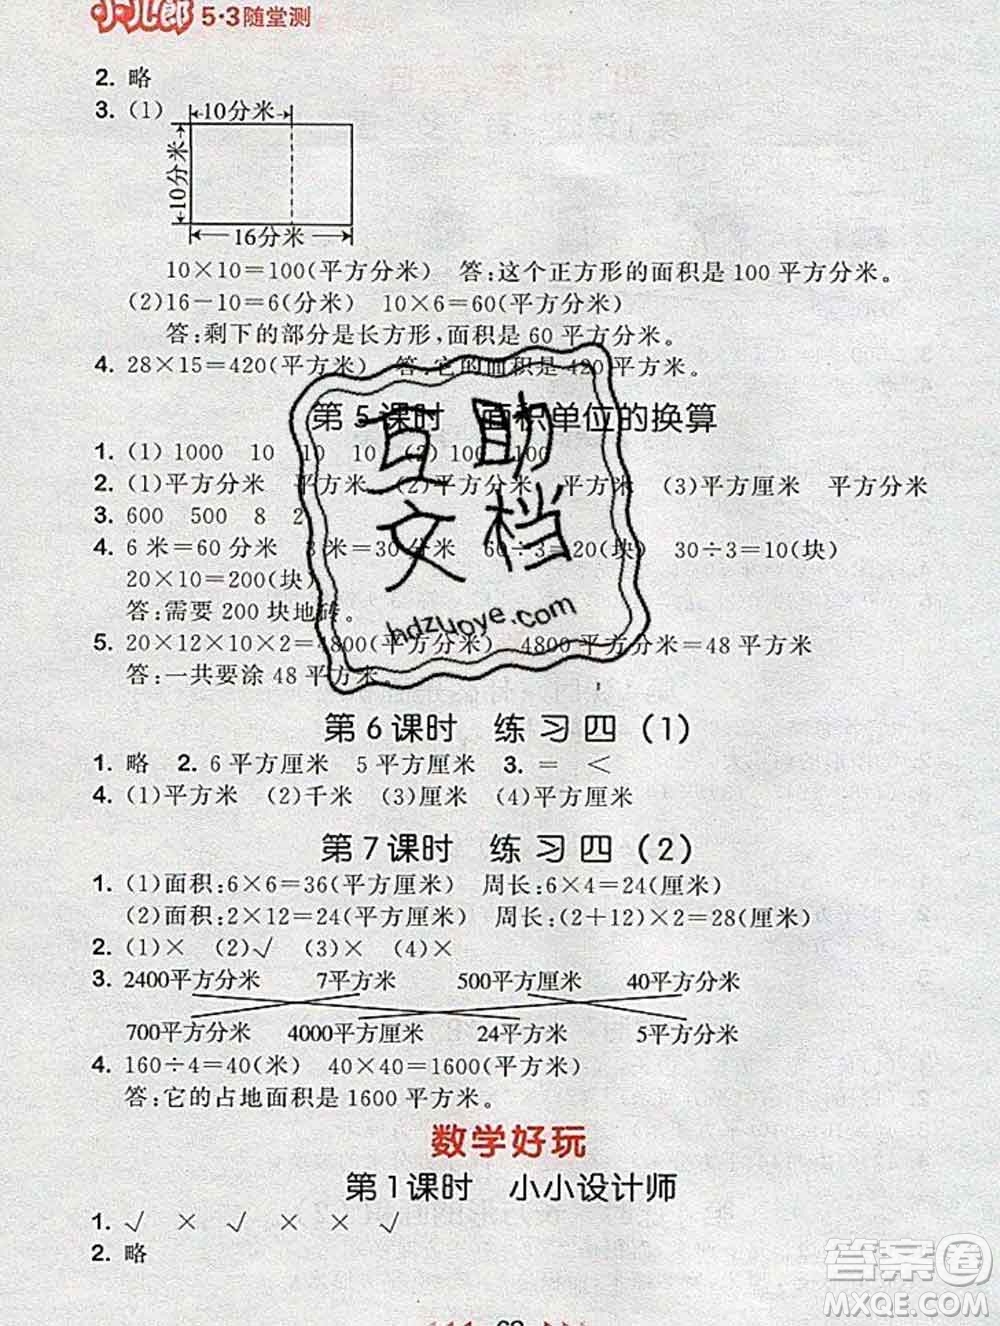 小儿郎 5·3随堂测
2. 略
3. (1) 10分米
10分米
16分米
10×10=100(平方分米) 答:这个正方形的面积是 100 平方分米。
(2)16-10=6(分米) 10×6=60(平方分米)
答:剩下的部分是长方形,面积是 60 平方分米。
4. 28×15=420(平方米) 答:它的面积是 420 平方米。
第 5 课时 面积单位的换算
1. (1) 1000 10 10 10 (2) 100 100
2. (1)平方分米 平方米 (2)平方分米 平方米 (3)平方厘米 平方分米
3. 600 500 8 2
4. 6 米=60 分米 3 米=30 分米 60÷3=20(块) 30÷3=10(块)
20×10=200(块)
答:需要 200 块地砖。
5. 20×12×10×2=4800(平方分米) 4800平方分米=48 平方米
答:一共要涂 48 平方米。
互助
文档
hdzuoye.com
第 6 课时 练 习 四 (1)
1. 略 2. 6 平方厘米 5 平方厘米 3. = <
4. (1)平方米 (2)千米 (3)厘米 (4)平方厘米
第 7 课时 练 习 四 (2)
1. (1)面积:6×6=36(平方厘米) 周长:6×4=24(厘米)
(2)面积:2×12=24(平方厘米) 周长:(2+12)×2=28(厘米)
2. (1)× (2)√ (3)× (4)×
3. 2400平方分米 7平方米 500平方厘米 40平方分米
700平方分米 4000平方厘米 24平方米 5平方分米
4. 160÷4=40(米) 40×40=1600(平方米)
答:它的占地面积是 1600 平方米。
数学好玩
第 1 课时 小小设计师
1. √ × √ × × √
2. 略
答案圈
MXQE.COM